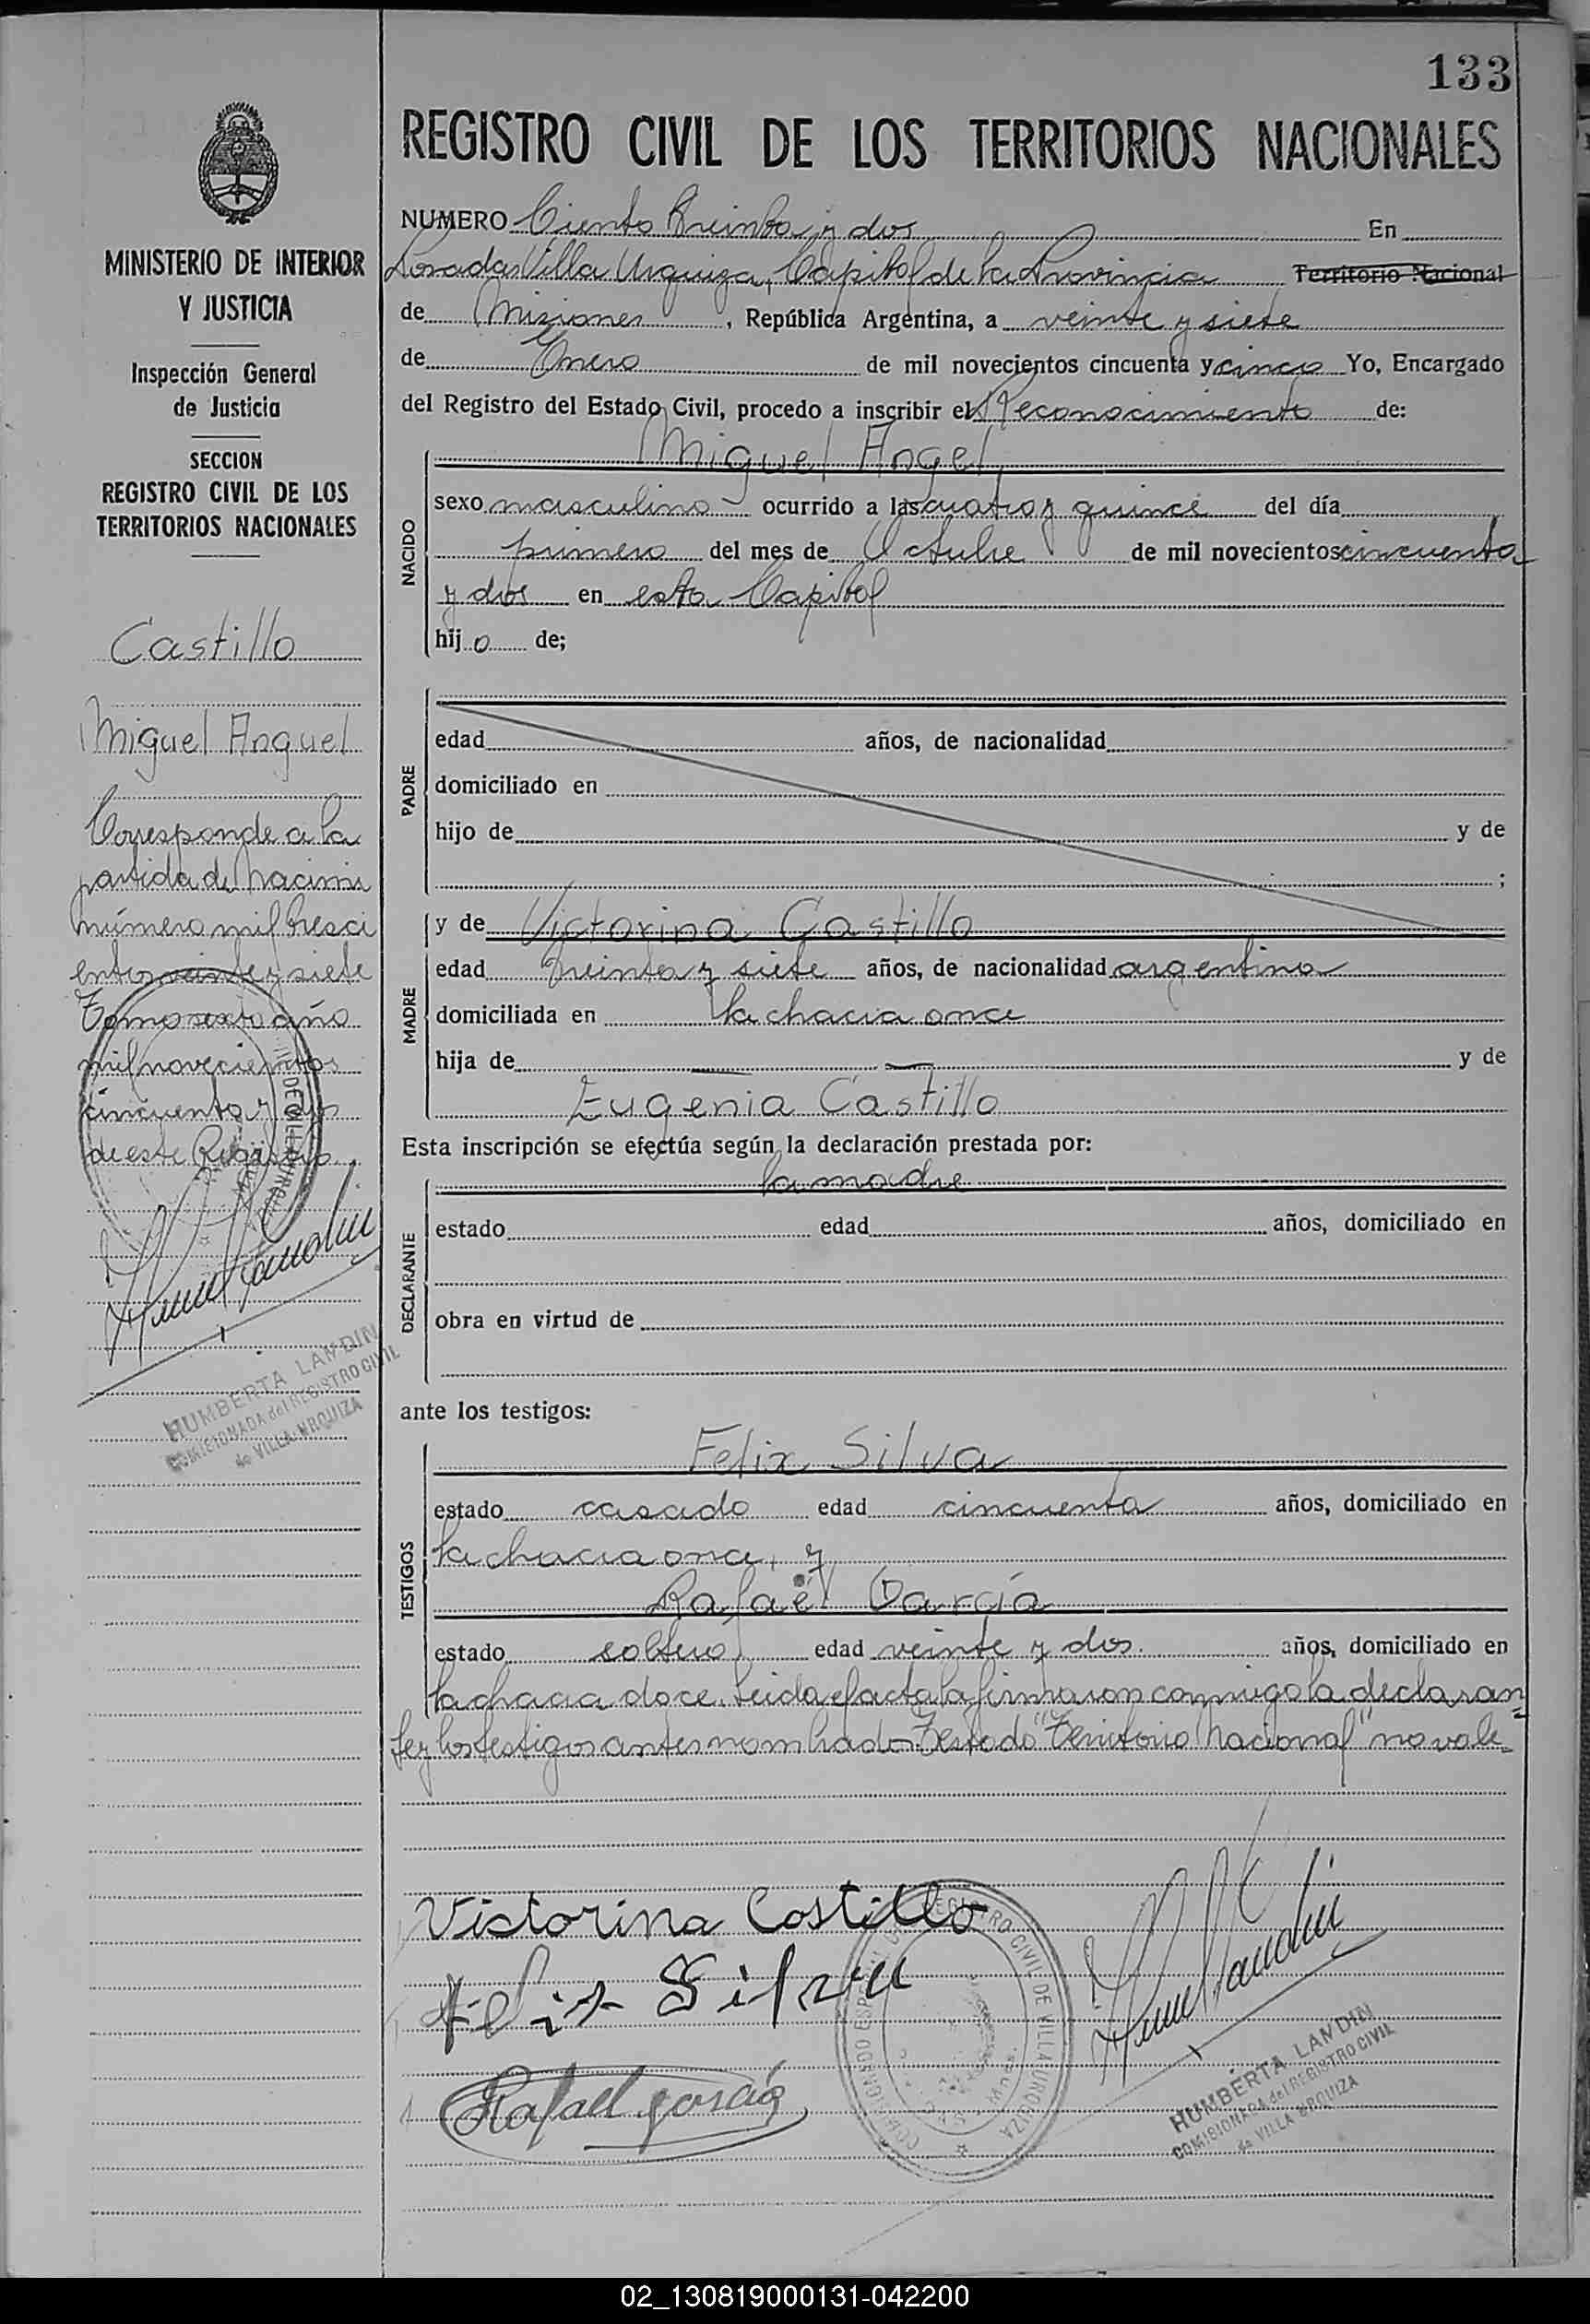 133
REGISTRO CIVIL DE LOS TERRITORIOS NACIONALES
MINISTERIO DE INTERIOR
Y JUSTICIA
Inspección General
de Justicia
SECCION
REGISTRO CIVIL DE LOS
TERRITORIOS NACIONALES
Castillo
Miguel Anguel
Corresponde a la
partida de nacimi
número mil tresci
entos veinte y siete
Tomo sexto año
mil novecientos
cincuenta y dos
de este Registro.
HUMBERTA LANDIN
COMISIONADA del REGISTRO CIVIL
de VILLA URQUIZA
NUMERO Ciento treinta y dos En
Posadas Villa Urquiza, Capital de la Provincia Territorio Nacional
de Misiones, República Argentina, a veinte y siete
de Enero de mil novecientos cincuenta y cinco Yo, Encargado
del Registro del Estado Civil, procedo a inscribir el Reconocimiento de:
NACIDO
Miguel Angel
sexo masculino ocurrido a las cuatro y quince del día
primero del mes de Octubre de mil novecientos cincuenta
y dos en esta Capital
hijo de;
PADRE
edad años, de nacionalidad
domiciliado en
hijo de y de
;
MADRE
y de Victorina Castillo
edad treinta y siete años, de nacionalidad argentina
domiciliada en la chacra once
hija de — — y de
Eugenia Castillo
Esta inscripción se efectúa según la declaración prestada por:
DECLARANTE
la madre
estado edad años, domiciliado en
obra en virtud de
ante los testigos:
TESTIGOS
Felix Silva
estado casado edad cincuenta años, domiciliado en
la chacra once, y
Rafael García
estado soltero edad veinte y dos. años, domiciliado en
la chacra doce. Leida el acta la firmaron conmigo la declaran
te y los testigos antes nombrados. Testado "Territorio Nacional" no vale.
Victorina Costillo
Felix Silva
Rafael garcia
COMISIONADO ESPECIAL DEL REGISTRO CIVIL DE VILLA URQUIZA
HUMBERTA LANDIN
COMISIONADA del REGISTRO CIVIL
de VILLA URQUIZA
02_130819000131-042200